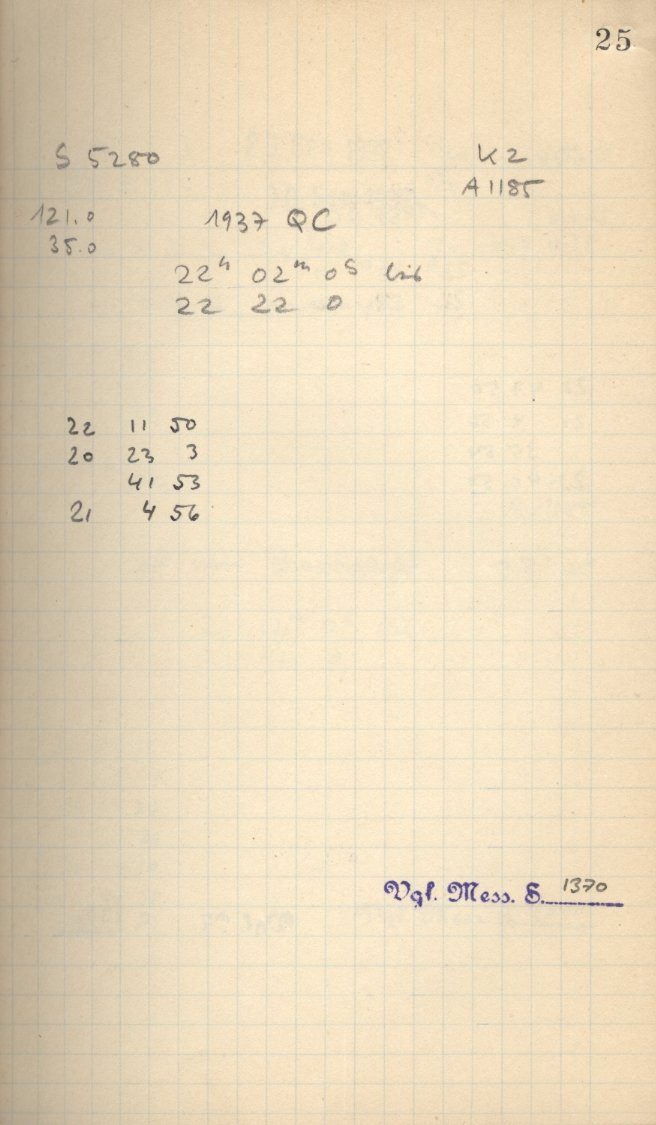 25
S 5280 K2
A1185
121.0 1937 QC
35.0
22h 02m 0s bis
22 22 0
22 11 50
20 23 3
41 53
21 4 56
Vgl. Mess. S. 1370